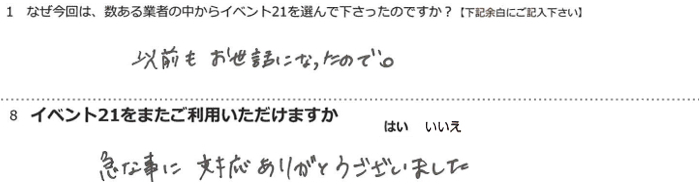 1 なぜ今回は、数ある業者の中からイベント21を選んで下さったのですか？【下記余白にご記入下さい】
以前も お世話になったので。
8 イベント21をまたご利用いただけますか
はい いいえ
急な事に 対応ありがとうございました